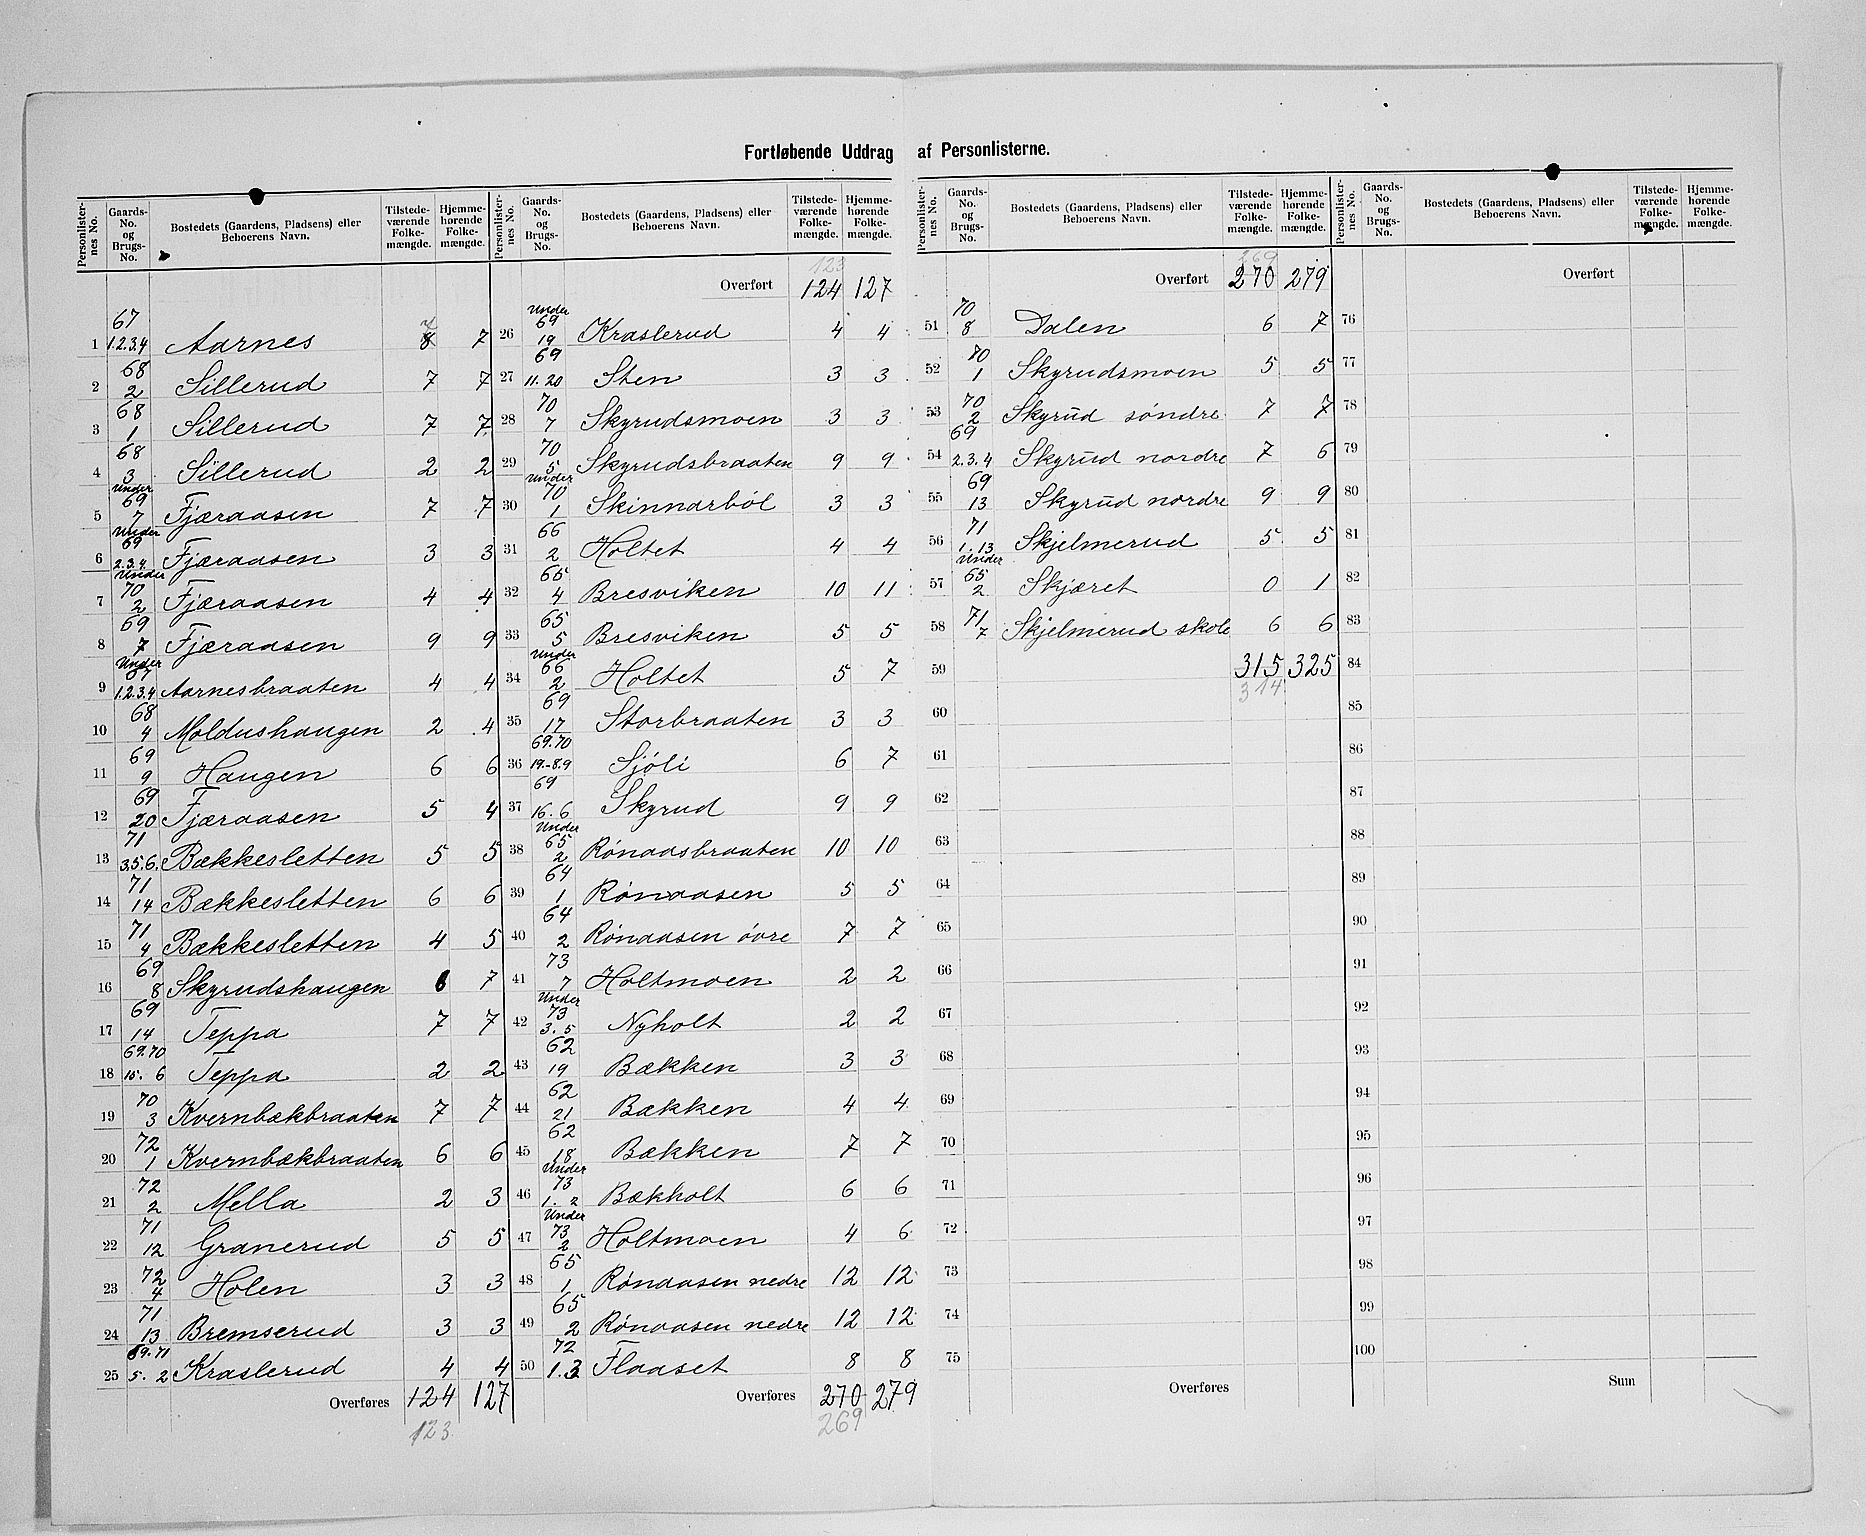 Fortløbende Uddrag af Personlisterne.
Personlister-nes No. | Gaards-No. og Brugs-No. | Bostedets (Gaardens, Pladsens) eller Beboerens Navn. | Tilstede-værende Folke-mængde. | Hjemme-hørende Folke-mængde.
1 | 67 1.2.3.4 | Aarnes | 8 7 | 7
2 | 68 2 | Sillerud | 7 | 7
3 | 68 1 | Sillerud | 7 | 7
4 | 68 3 | Sillerud | 2 | 2
5 | Under 69 7 | Fjæraasen | 7 | 7
6 | Under 69 2.3.4 | Fjæraasen | 3 | 3
7 | Under 70 2 | Fjæraasen | 4 | 4
8 | 69 7 | Fjæraasen | 9 | 9
9 | Under 67 1.2.3.4 | Aarnesbraaten | 4 | 4
10 | 68 4 | Moldushaugen | 2 | 4
11 | 69 9 | Haugen | 6 | 6
12 | 69 20 | Fjæraasen | 5 | 4
13 | 71 3.5.6. | Bækkesletten | 5 | 5
14 | 71 14 | Bækkesletten | 6 | 6
15 | 71 4 | Bækkesletten | 4 | 5
16 | 69 8 | Skyrudshaugen | 6 | 7
17 | 69 14 | Teppa | 7 | 7
18 | 69.70 15. 6 | Teppa | 2 | 2
19 | 70 3 | Kvernbækbraaten | 7 | 7
20 | 72 1 | Kvernbækbraaten | 6 | 6
21 | 72 2 | Mella | 2 | 3
22 | 71 12 | Granerud | 5 | 5
23 | 72 4 | Holen | 3 | 3
24 | 71 13 | Bremserud | 3 | 3
25 | 69.71 5. 2 | Kraslerud | 4 | 4
Overføres | 124 | 127
123
Personlister-nes No. | Gaards-No. og Brugs-No. | Bostedets (Gaardens, Pladsens) eller Beboerens Navn. | Tilstede-værende Folke-mængde. | Hjemme-hørende Folke-mængde.
123
Overført | 124 | 127
26 | Under 69 19 | Kraslerud | 4 | 4
27 | 69 11.20 | Sten | 3 | 3
28 | 70 7 | Skyrudsmoen | 3 | 3
29 | 70 5 | Skyrudsbraaten | 9 | 9
30 | Under 70 1 | Skinnarböl | 3 | 3
31 | 66 2 | Holtet | 4 | 4
32 | 65 4 | Bresviken | 10 | 11
33 | 65 5 | Bresviken | 5 | 5
34 | Under 66 2 | Holtet | 5 | 7
35 | 69 17 | Storbraaten | 3 | 3
36 | 69.70 19.-8.9 | Sjöli | 6 | 7
37 | 69 16. 6 | Skyrud | 9 | 9
38 | Under 65 2 | Rønaasbraaten | 10 | 10
39 | 64 1 | Rønaasen | 5 | 5
40 | 64 2 | Rønaasen övre | 7 | 7
41 | 73 7 | Holtmoen | 2 | 2
42 | Under 73 3. 5 | Nyholt | 2 | 2
43 | 62 19 | Bækken | 3 | 3
44 | 62 21 | Bækken | 4 | 4
45 | 62 18 | Bækken | 7 | 7
46 | Under 73 1. 2 | Bækholt | 6 | 6
47 | Under 73 2 | Holtmoen | 4 | 6
48 | 65 1 | Rønaasen nedre | 12 | 12
49 | 65 2 | Rønaasen nedre | 12 | 12
50 | 72 1.3 | Flaaset | 8 | 8
Overføres | 270 | 279
269
Personlister-nes No. | Gaards-No. og Brugs-No. | Bostedets (Gaardens, Pladsens) eller Beboerens Navn. | Tilstede-værende Folke-mængde. | Hjemme-hørende Folke-mængde.
269
Overført | 270 | 279
51 | 70 8 | Dalen | 6 | 7
52 | 70 1 | Skyrudsmoen | 5 | 5
53 | 70 2 | Skyrud søndre | 7 | 7
54 | 69 2.3.4 | Skyrud nordre | 7 | 6
55 | 69 13 | Skyrud nordre | 9 | 9
56 | 71 1.13 | Skjelmerud | 5 | 5
57 | Under 65 2 | Skjæret | 0 | 1
58 | 71 7 | Skjelmerud skole | 6 | 6
59 | 315 | 325
314
60
61
62
63
64
65
66
67
68
69
70
71
72
73
74
75
Overføres
Personlister-nes No. | Gaards-No. og Brugs-No. | Bostedets (Gaardens, Pladsens) eller Beboerens Navn. | Tilstede-værende Folke-mængde. | Hjemme-hørende Folke-mængde.
Overført
76
77
78
79
80
81
82
83
84
85
86
87
88
89
90
91
92
93
94
95
96
97
98
99
100
Sum